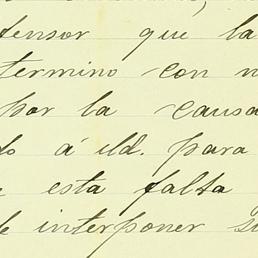 tensor que la
termino con
por la causa
do á Ud. para
esta falta
de interponer